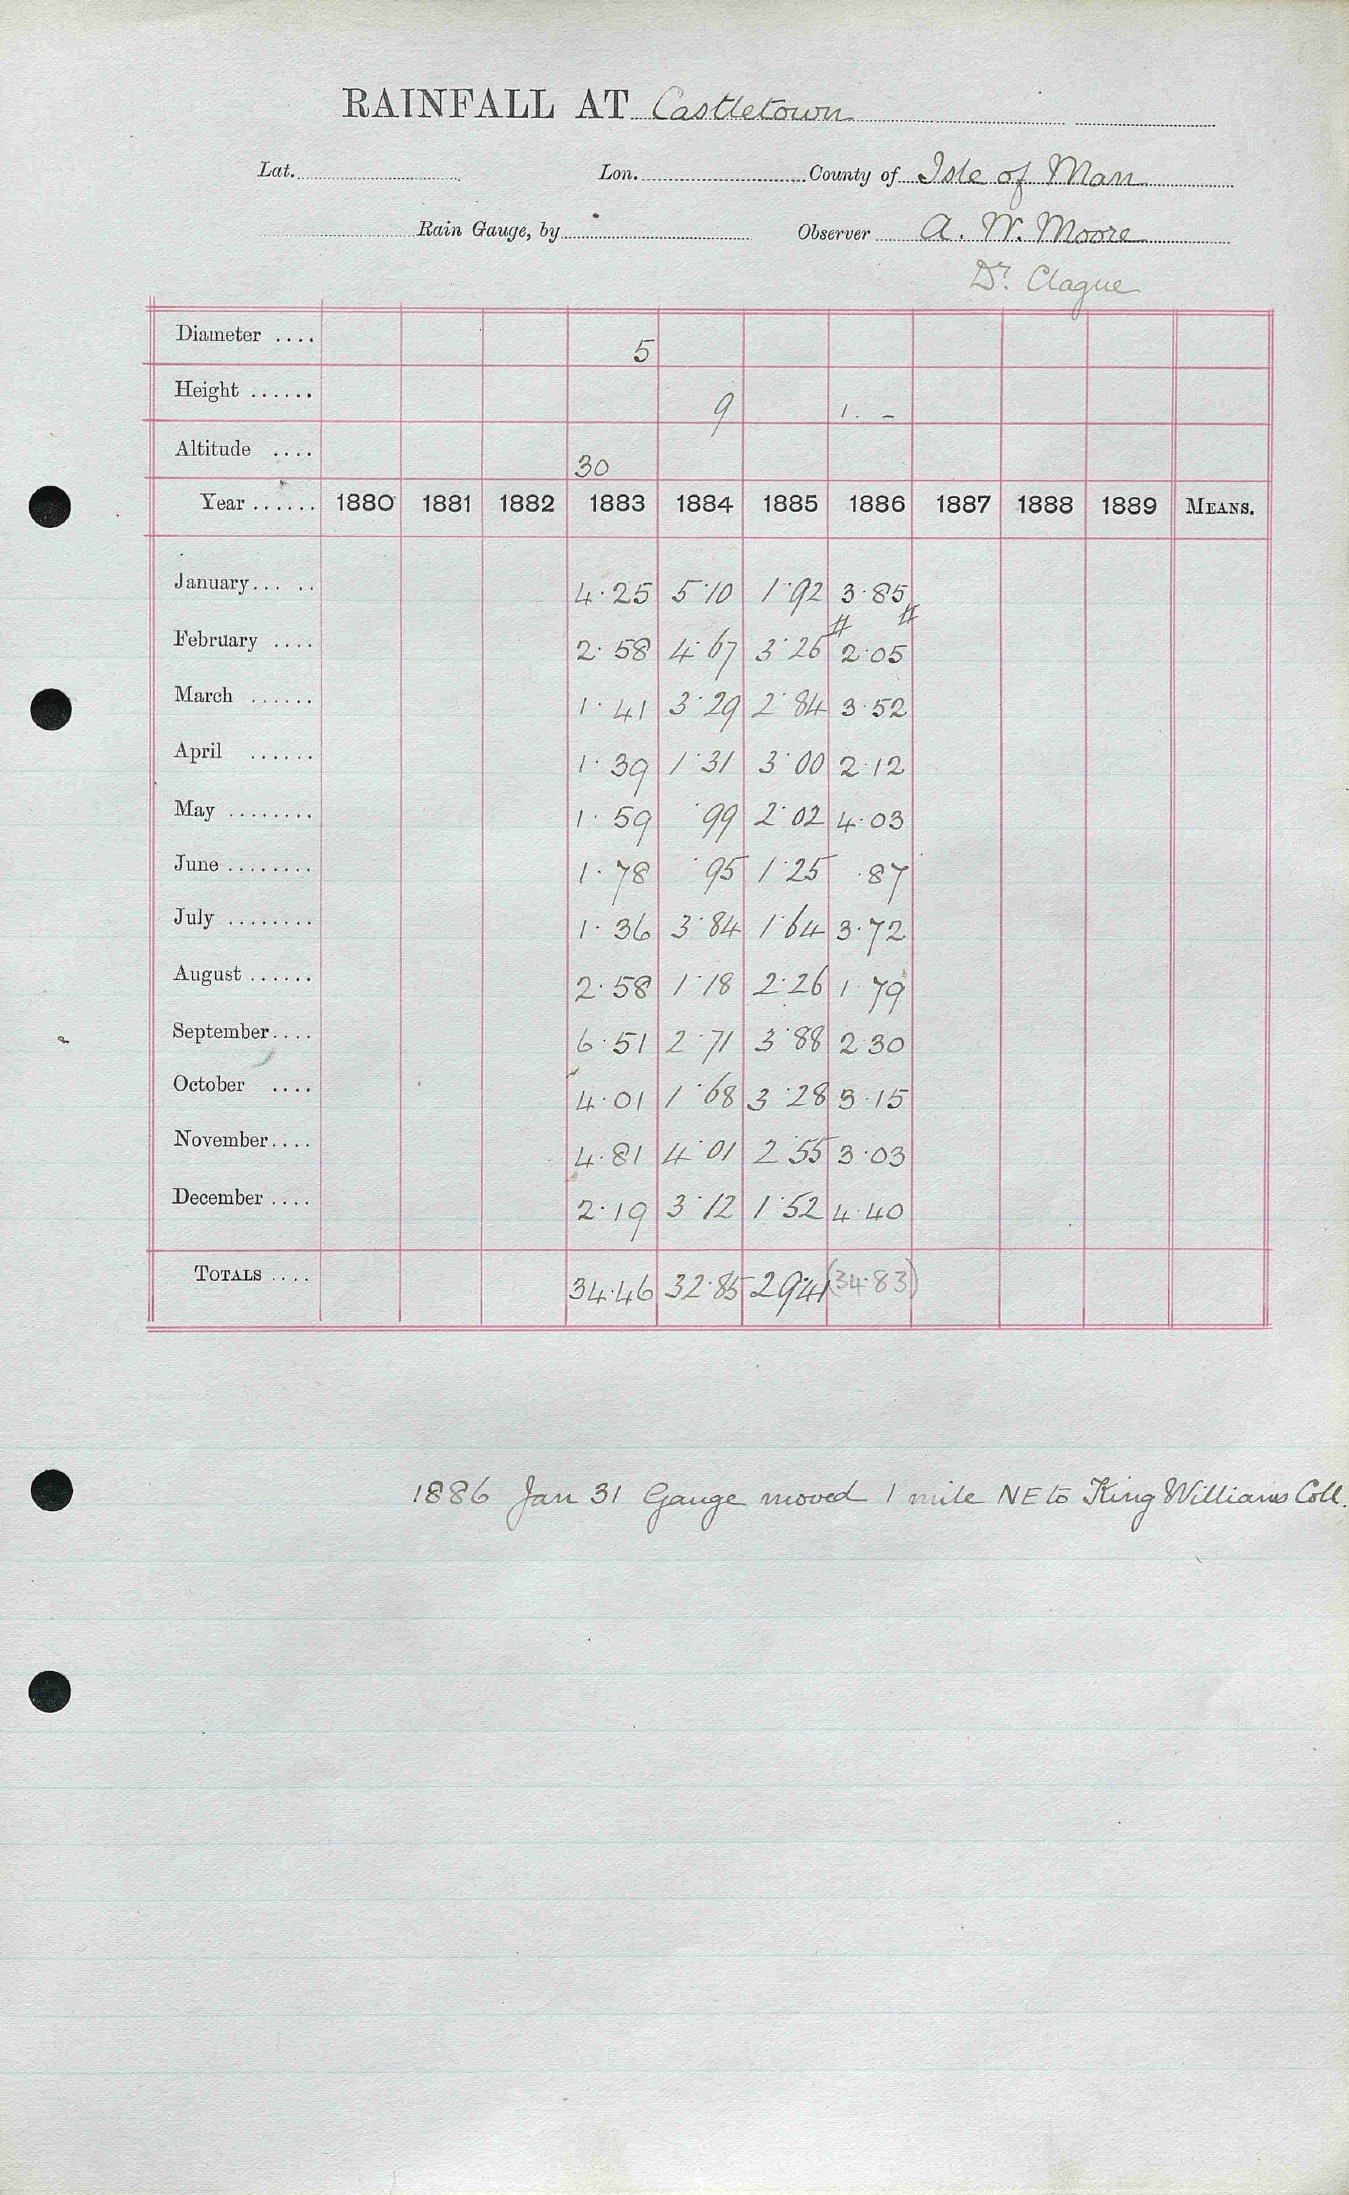 RAINFALL AT Castletown
Lat. Lon. County of Isle of Man
Rain Gauge, by Observer A. W. Moore
Dr. Clague
Diameter .... 5
Height ...... 9 1. -
Altitude .... 30
Year ...... 1880 1881 1882 1883 1884 1885 1886 1887 1888 1889 MEANS.
January... .. 4.25 5.10 1.92 3.85
# #
February .... 2.58 4.67 3.26 2.05
March ...... 1.41 3.29 2.84 3.52
April ...... 1.39 1.31 3.00 2.12
May ........ 1.59 .99 2.02 4.03
June ........ 1.78 .95 1.25 .87
July ........ 1.36 3.84 1.64 3.72
August ...... 2.58 1.18 2.26 1.79
September.... 6.51 2.71 3.88 2.30
October .... 4.01 1.68 3.28 3.15
November.... 4.81 4.01 2.55 3.03
December .... 2.19 3.12 1.52 4.40
TOTALS .... 34.46 32.85 29.41 (34.83)
1886 Jan 31 Gauge moved 1 mile NE to King Williams Coll.